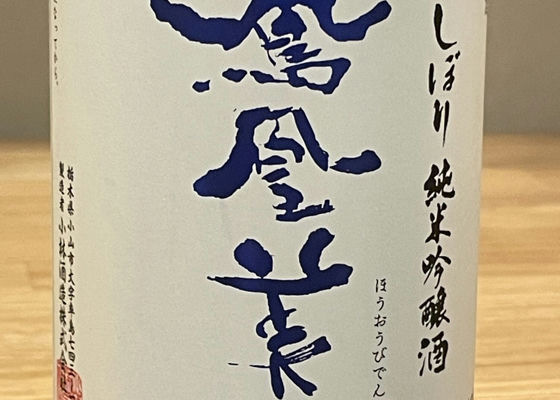 しぼり 純米吟醸酒
鳳凰美
ほうおうびでん
なってから。
栃木県小山市大字卒島七四
製造者 小林酒造株式会